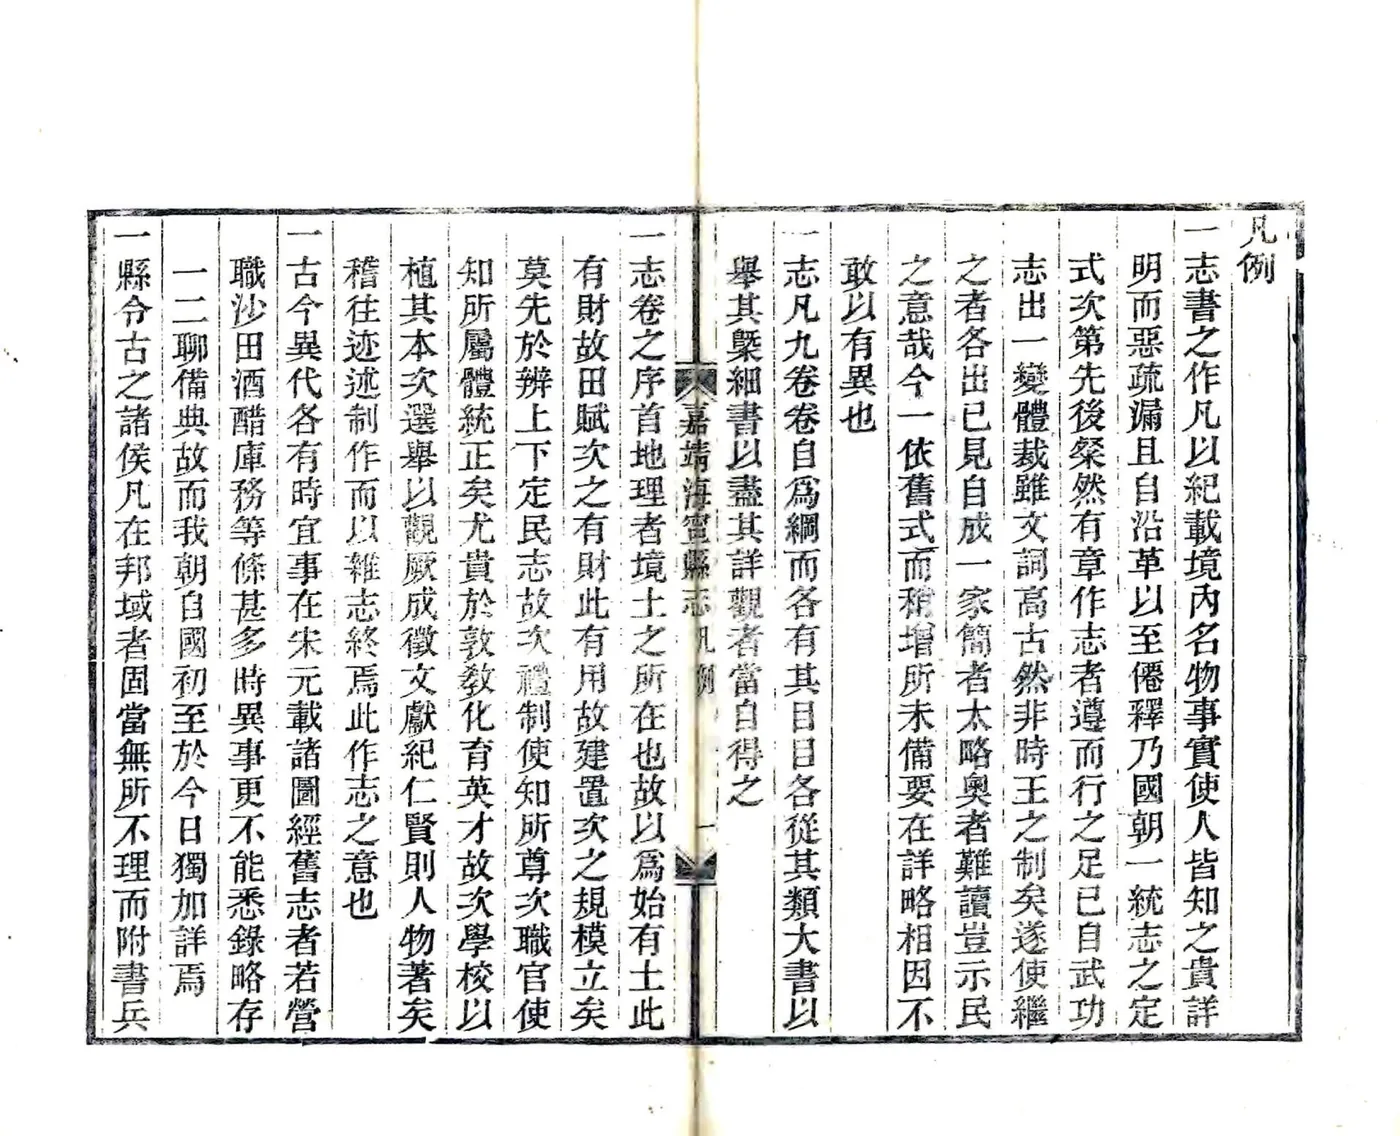 凡例
一志書之作凡以紀載境內名物事實使人皆知之貴詳
明而惡疏漏且自沿革以至僊釋乃國朝一統志之定
式次第先後粲然有章作志者遵而行之足已自武功
志出一變體裁雖文詞高古然非時王之制矣遂使繼
之者各出已見自成一家簡者太略奧者難讀豈示民
之意哉今一依舊式而稍增所未備要在詳略相因不
敢以有異也
一志凡九卷卷自爲綱而各有其目目各從其類大書以
舉其槩細書以盡其詳觀者當自得之
嘉靖海寧縣志 凡例 一
一志卷之序首地理者境土之所在也故以爲始有土此
有財故田賦次之有財此有用故建置次之規模立矣
莫先於辨上下定民志故次禮制使知所尊次職官使
知所屬體統正矣尤貴於敦教化育英才故次學校以
植其本次選舉以觀厥成徵文獻紀仁賢則人物著矣
稽往迹述制作而以雜志終焉此作志之意也
一古今異代各有時宜事在宋元載諸圖經舊志者若營
職沙田酒醋庫務等條甚多時異事更不能悉錄略存
一二聊備典故而我朝自國初至於今日獨加詳焉
一縣令古之諸侯凡在邦域者固當無所不理而附書兵